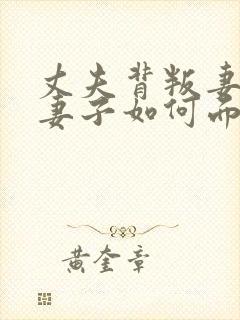 丈夫背叛妻
妻子如何而
黄奎章